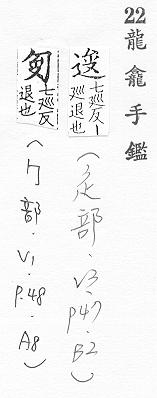 22龍龕手鑑
逡七廵反｜廵退也
(辵部．V3．P47．B2)
七廵反退也
(勹部．V1．P.48．A8)